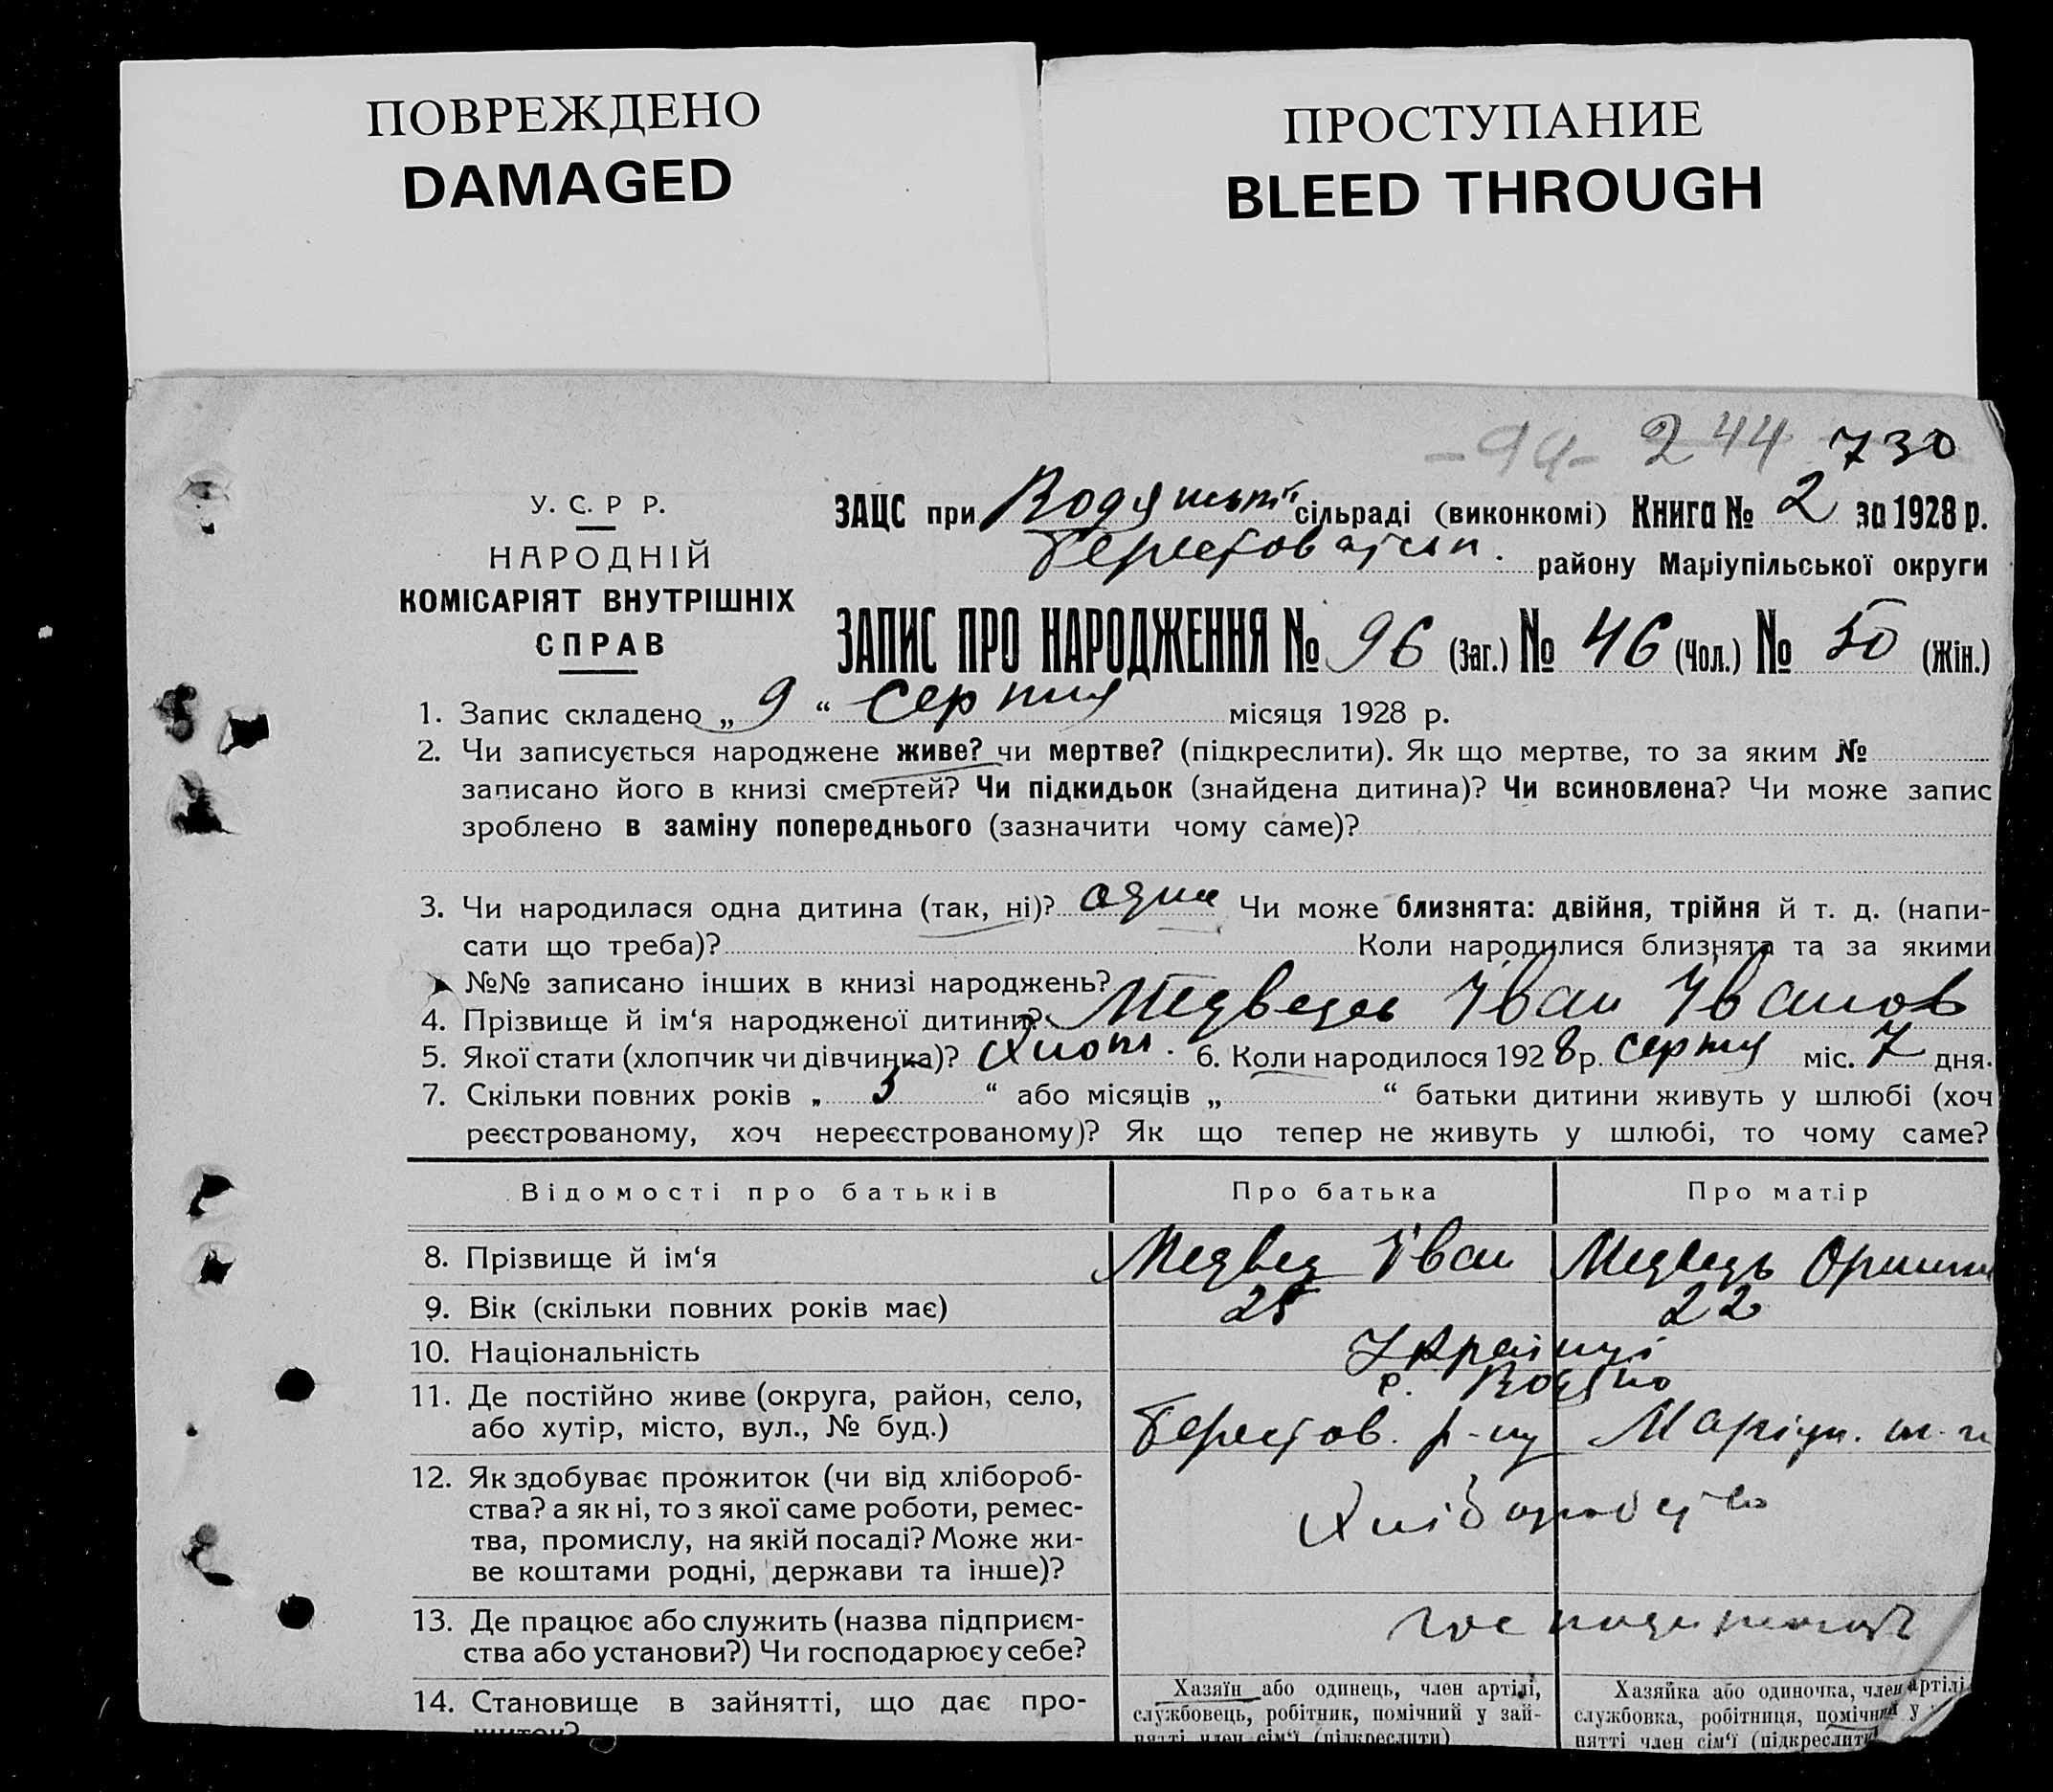 ПОВРЕЖДЕНО
DAMAGED
ПРОСТУПАНИЕ
BLEED THROUGH
-94- 244 730
У. С. Р Р.
НАРОДНІЙ
КОМІСАРІЯТ ВНУТРІШНІХ
СПРАВ
ЗАЦС при сільраді (виконкомі) Книга № 2 за 1928 р.
району Маріупільської округи
ЗАПИС ПРО НАРОДЖЕННЯ № 96 (Заг.) № 46 (Чол.) № 50 (Жін.)
1. Запис складено „ 9 “ серпня місяця 1928 р.
2. Чи записується народжене живе? чи мертве? (підкреслити). Як що мертве, то за яким №
записано його в книзі смертей? Чи підкидьок (знайдена дитина)? Чи всиновлена? Чи може запис
зроблено в заміну попереднього (зазначити чому саме)?
3. Чи народилася одна дитина (так, ні)? одна Чи може близнята: двійня, трійня й т. д. (напи-
сати що треба)? Коли народилися близнята та за якими
№№ записано інших в книзі народжень?
4. Прізвище й ім‘я народженої дитини? Медведь Іван Іванов
5. Якої стати (хлопчик чи дівчинка)? Хлоп. 6. Коли народилося 1928 р. серпня міс. 7 дня.
7. Скільки повних років „ 3 “ або місяців „ “ батьки дитини живуть у шлюбі (хоч
реєстрованому, хоч нереєстрованому)? Як що тепер не живуть у шлюбі, то чому саме?
Відомості про батьків Про батька Про матір
8. Прізвище й ім‘я Медвед Іван Медведь
9. Вік (скільки повних років має) 25 22
10. Національність Українці
11. Де постійно живе (округа, район, село,
або хутір, місто, вул., № буд.)
с. Водяно
Берестов. р-ну Маріуп.
12. Як здобуває прожиток (чи від хлібороб-
ства? а як ні, то з якої саме роботи, ремес-
тва, промислу, на якій посаді? Може жи-
ве коштами родні, держави та інше)?
Хліборобство
13. Де працює або служить (назва підприєм-
ства або установи?) Чи господарює у себе?
14. Становище в зайнятті, що дає про-
Хазяїн або одинець, член артілі,
службовець, робітник, помічний у зай-
нятті член сім‘ї (підкреслити)
Хазяйка або одиночка, член артілі
службовка, робітниця, помічний у
нятті член сім‘ї (підкреслити